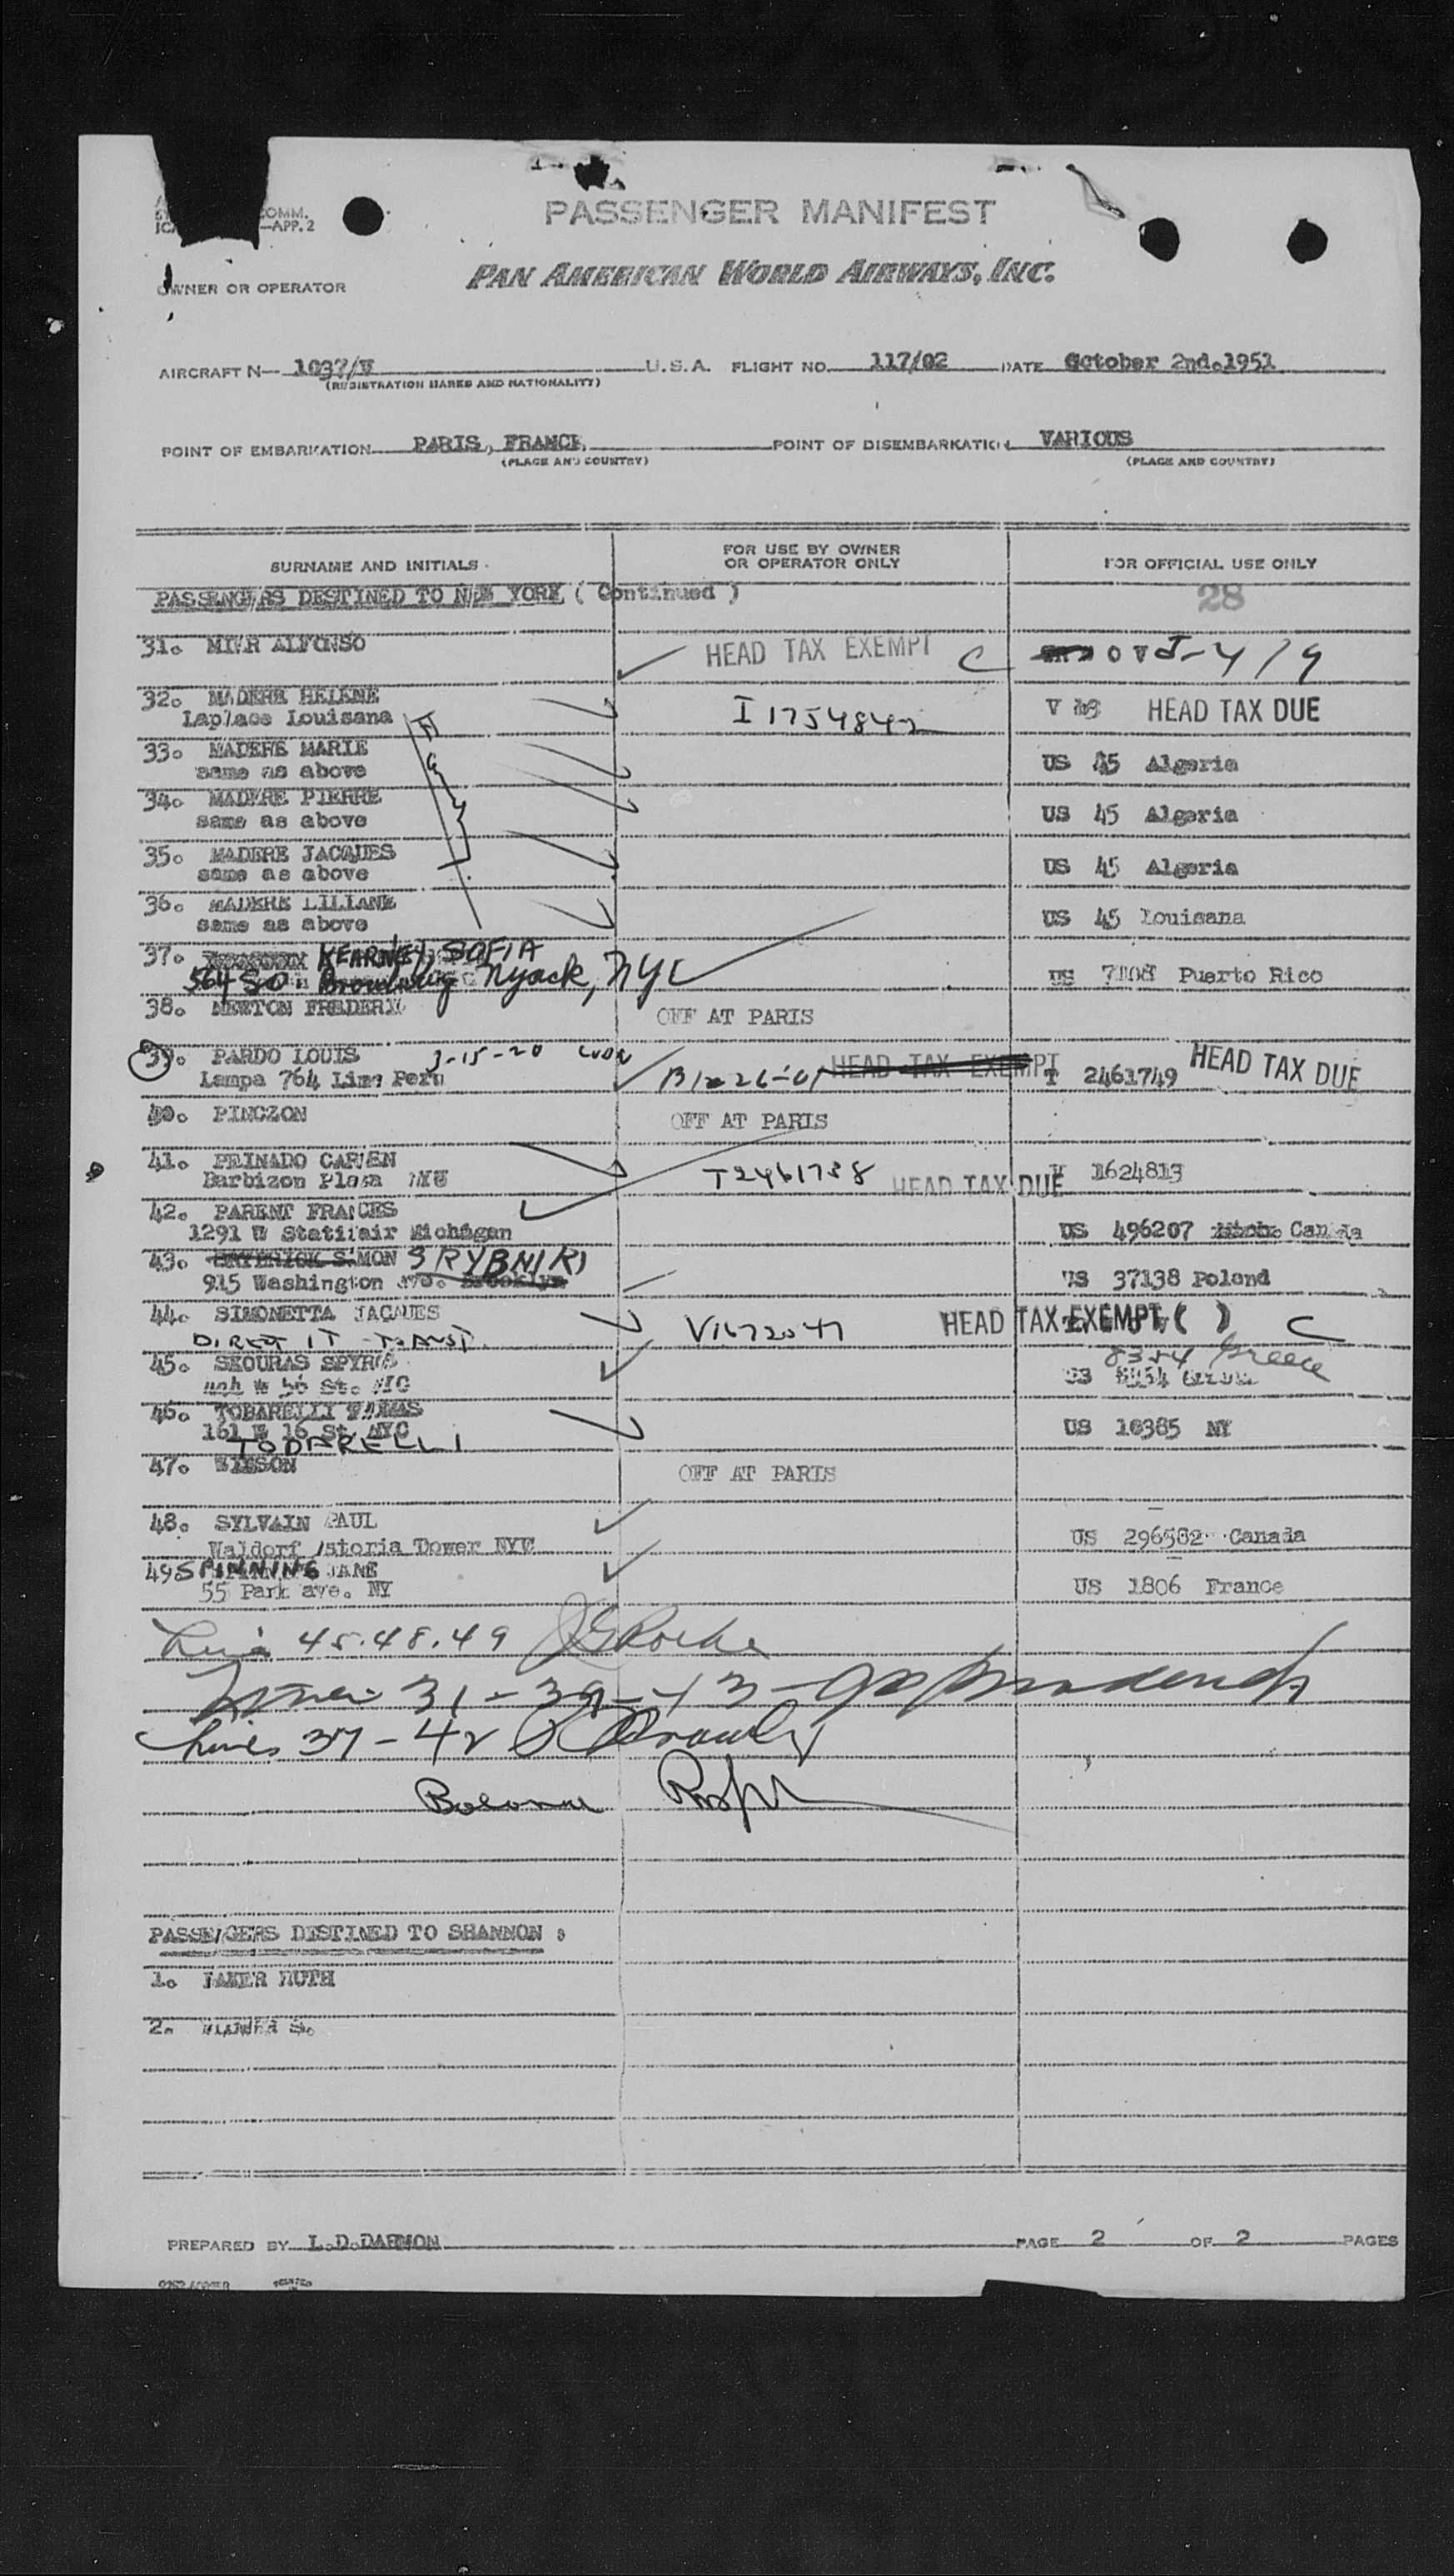 COMM.
—APP. 2
PASSENGER MANIFEST
PAN AMERICAN WORLD AIRWAYS, INC.
OWNER OR OPERATOR
AIRCRAFT N— 1037/V U.S.A. FLIGHT NO. 117/02 DATE October 2nd.1951
(REGISTRATION MARKS AND NATIONALITY)
POINT OF EMBARKATION PARIS, FRANCE POINT OF DISEMBARKATION VARIOUS
(PLACE AND COUNTRY) (PLACE AND COUNTRY)
SURNAME AND INITIALS FOR USE BY OWNER OR OPERATOR ONLY FOR OFFICIAL USE ONLY
PASSENGERS DESTINED TO NEW YORK ( Continued ) 28
31. ALFONSO HEAD TAX EXEMPT C
32. MADERE HELENE
Laplace Louisana I 1754842 V HEAD TAX DUE
33. MADERE MARIE
same as above US 45 Algeria
34. MADERE PIERRE
same as above US 45 Algeria
35. MADERE JACQUES
same as above US 45 Algeria
36. MADERE LILIANE
same as above US 45 Louisana
37. KEARNEY, SOFIA
564 SO. Broadway Nyack, NYC US 7108 Puerto Rico
38. NEWTON FREDERIC OFF AT PARIS
39. PARDO LOUIS 3-15-20
Lampa 764 Lima Peru HEAD TAX EXEMPT T 2461749 HEAD TAX DUE
40. PINCZON OFF AT PARIS
41. PEINADO CARMEN
Barbizon Plaza NYC T2461738 HEAD TAX DUE 1624813
42. PARENT FRANCES
1291 W Michigan US 496207 Canada
43. SIMON S RYBNIKI
915 Washington ave. Brooklyn US 37138 Poland
44. SIMONETTA JACQUES HEAD TAX EXEMPT ( ) C
DIRECT V1672047
45. SKOURAS SPYROS 8354 Greece
St. US
46. TOBARELLI
161 E 16 St. NYC US 10385 NY
TODARELLI
47. WILSON OFF AT PARIS
48. SYLVAIN PAUL
Waldorf Astoria Tower NYC US 296502 Canada
49. SPINNING JANE
55 Park ave. NY US 1806 France
45.48.49
31-39-43
Lines 37-42
PASSENGERS DESTINED TO SHANNON :
1. RUTH
2. S.
PREPARED BY L.D.DARMON PAGE 2 OF 2 PAGES